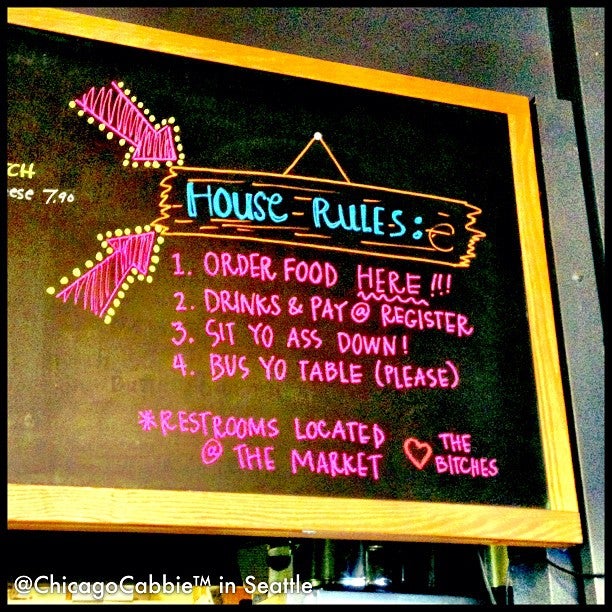 CH
ese 7.90
HOUSE RULES:
1. ORDER FOOD HERE!!!
2. DRINKS & PAY @ REGISTER
3. SIT YO ASS DOWN!
4. BUS YO TABLE (PLEASE)
*RESTROOMS LOCATED
@ THE MARKET
♡ THE
BITCHES
@ChicagoCabbie™ in Seattle